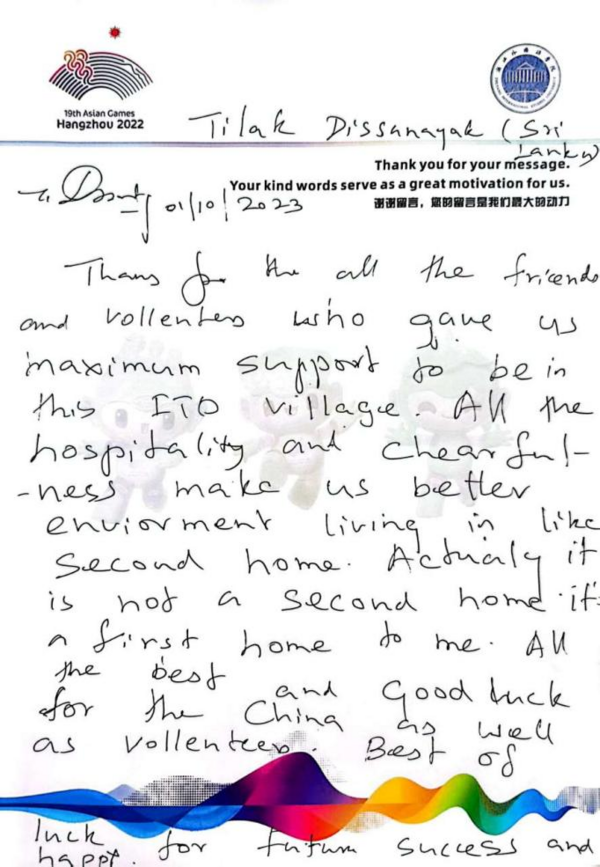 19th Asian Games
Hangzhou 2022
Tilak Dissanayak (Sri
Lanka)
Thank you for your message.
Your kind words serve as a great motivation for us.
谢谢留言，您的留言是我们最大的动力
01/10/2023
Thans for the all the friends
and vollenters who gave us
maximum support to be in
this ITO village. All the
hospitality and chearful-
-ness make us better
enviorment living in like
Second home. Actualy it
is not a second home it's
a first home to me. All
the best and Good luck
for the China as well
as vollenteers. Best of
luck for future success and
happt.